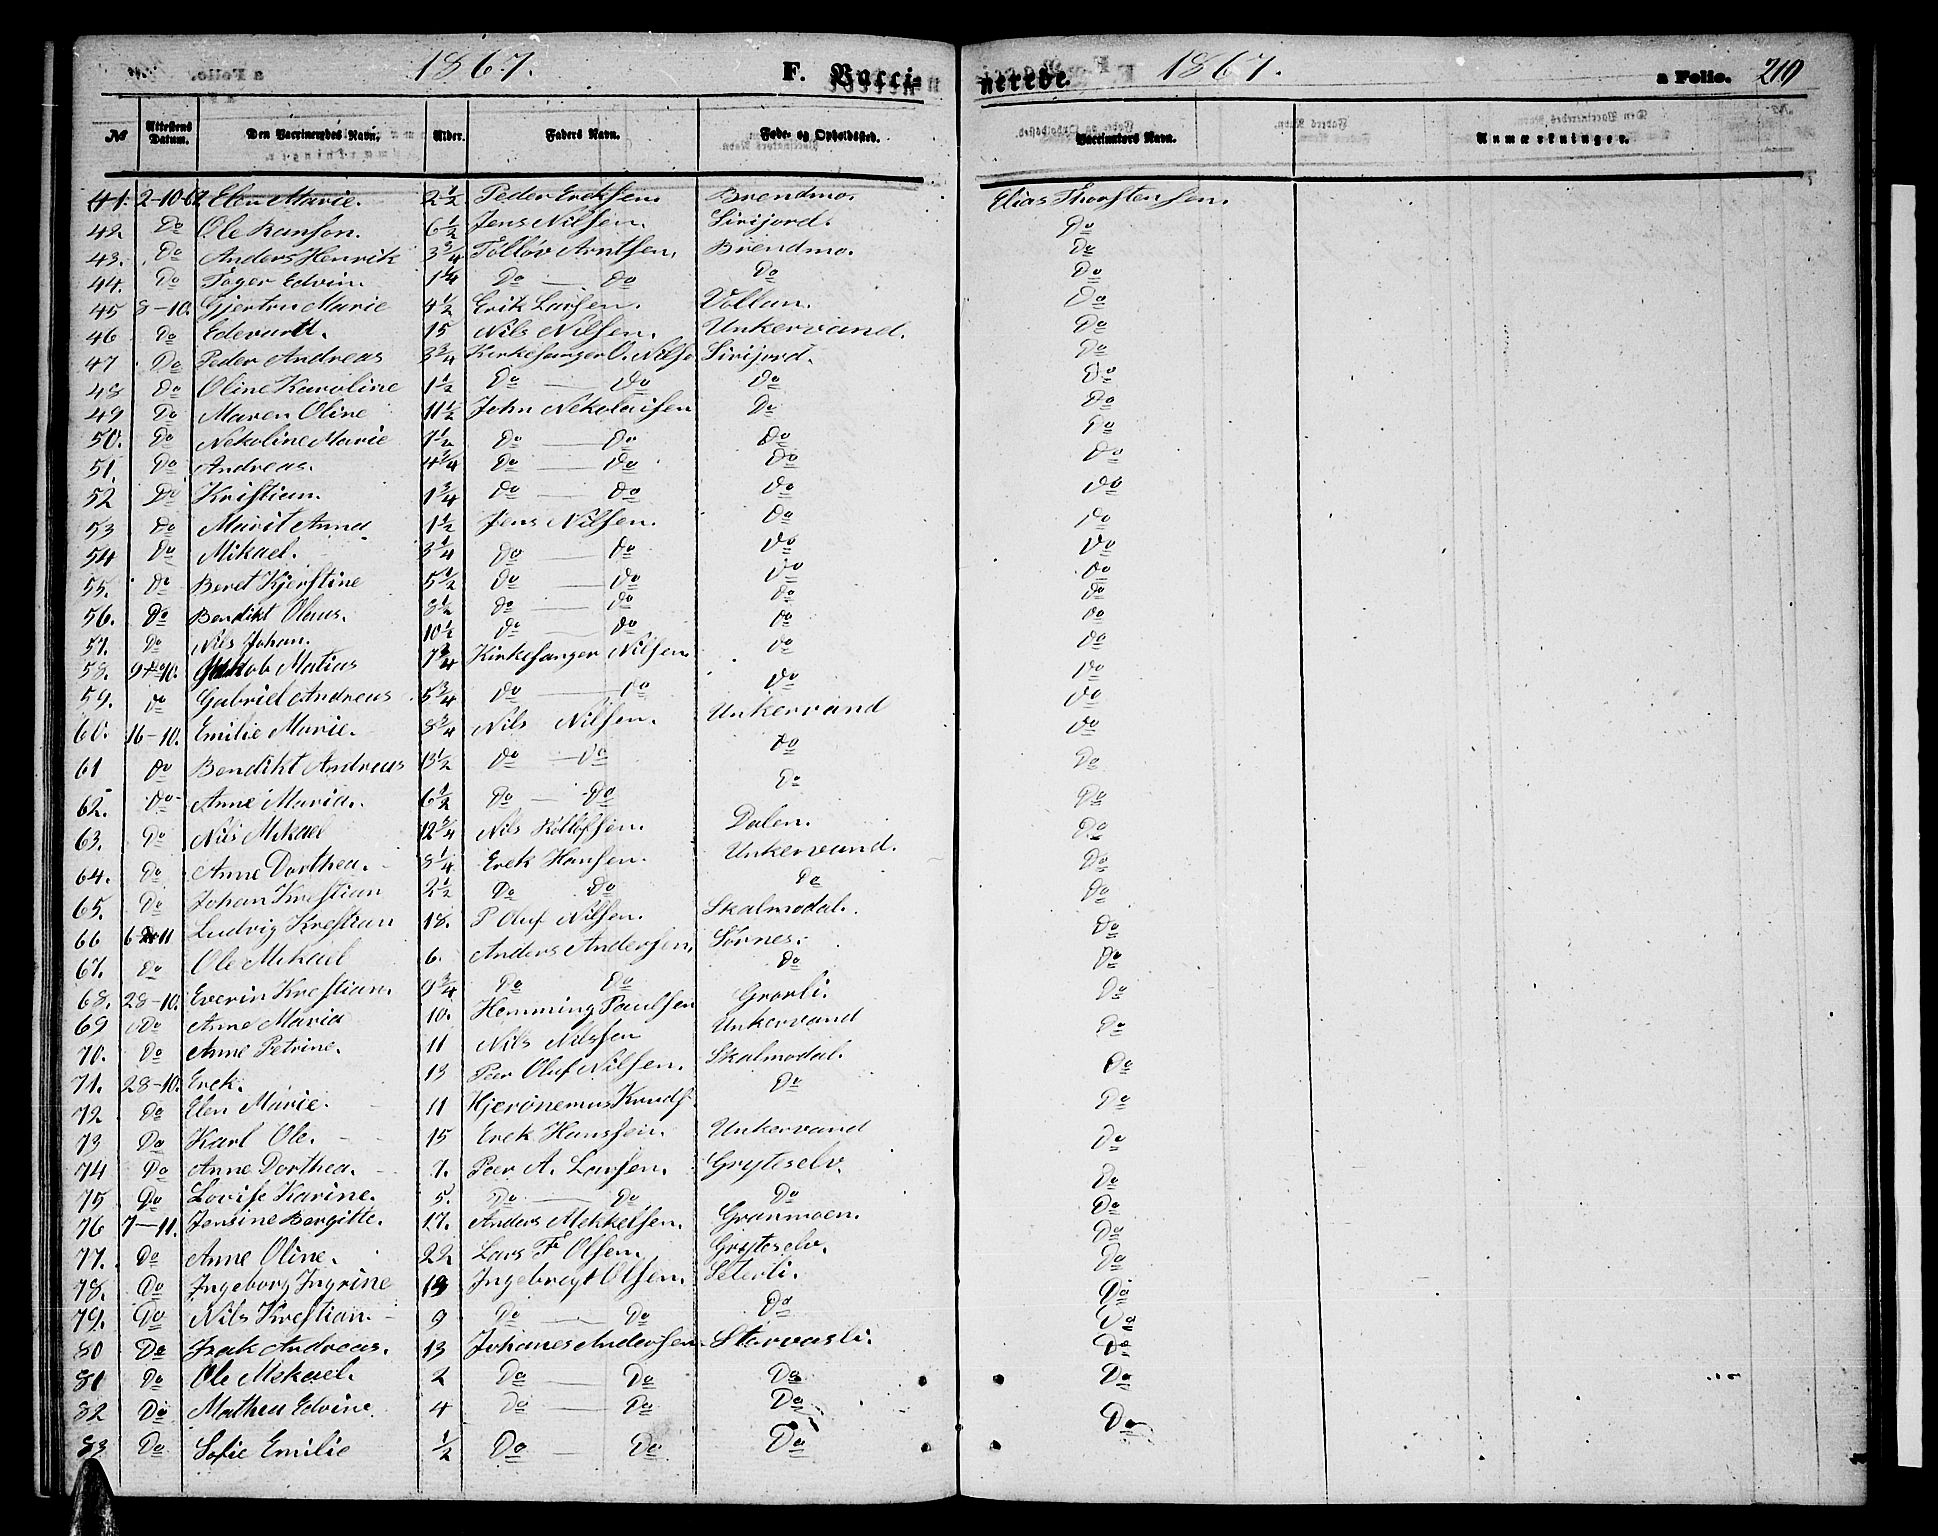 1867. F. Vacci-
nerede. 1867. a Folio. 210
No Attestens Datum. Den Vaccineredes Navn. Alder. Faders Navn. Føde- og Opholdssted. Vaccinators Navn. Anmærkninger.
41. 2-10-62 Elen Marie. 2 1/2 Peder Ereksen. Brendmo. Elias Thorstensen.
42 Do Ole Ranson. 6 1/2 Jens Nilsen. Sirijord. Do
43. Do Anders Henrik 3 3/4 Tolløv Arntsen. Brendmo. Do
44. Do Toger Edvin. 1 1/4 Do — Do Do Do
45 8-10. Gjertru Marie 4 1/2 Erik Larsen. Vollan. Do
46 Do Edevart. 15 Nils Nilsen. Unkervand. Do
47 Do Peder Andreas 3 3/4 Kirkesanger O. Nilse Sirijord. Do
48 Do Oline Karoline 1 1/2 Do — Do Do Do
49 Do Maren Oline 11 1/2 John Nekolaisen Do Do
50. Do Nekoline Marie 7 1/2 Do — Do Do Do
51. Do Andreas. 4 3/4 Do — Do Do Do
52 Do Kristian. 1 3/4 Do — Do Do Do
53 Do Marit Anna 1 1/2 Jens Nilsen. Do Do
54 Do Mikael. 3 1/4 Do — Do Do Do
55. Do Beret Kjerstine 5 1/2 Do — Do Do Do
56. Do Bendikt Olaus. 8 1/2 Do — Do Do Do
57. Do Nils Johan. 10 1/2 Do — Do Do Do
58. 9-10. Jakob Matias 7 3/4 Kirkesanger Nilsen Do Do
59. Do Gabriel Andreas 5 3/4 Do — Do Do Do
60. 16-10. Emilie Marie. 8 3/4 Nils Nilsen. Unkervand Do
61 Do Bendikt Andreas 13 1/2 Do — Do Do Do
62. Do Anne Maria. 6 1/2 Do — Do Do Do
63. Do Nils Mikael 12 3/4 Nils Kolløfsen. Dalen. Do
64. Do Anne Dorthea. 8 1/4 Erek Hansen. Unkervand. Do
65. Do Johan Krestian 2 1/2 Do Do Do Do
66 6-11 Ludvig Krestian 18. P Oluf Nilsen. Skalmodal. Do
67. Do Ole Mikael 6. Anders Andersen. Sørnes. Do
68. 28-10. Everin Krestian. 9 3/4 Do Do Do Do
69 Do Anne Maria 10. Hemming Paulsen Grørli. Do
70. Do Anne Petrine. 11 Nils Nilssen Unkervand Do
71. 28-10. Erek. 13 Peer Oluf Nilsen. Skalmodal. Do
72 Do Elen Marie. 11 Hjerønemus Knuds. Do Do
73 Do Karl Ole. 15 Erek Hanssein. Unkervand Do
74 Do Anne Dorthea. 7. Peer A. Larsen. Gryteselv. Do
75 Do Lovise Karine. 5. Do — Do Do Do
76 7-11. Jensine Bergitte. 17. Anders Mekkelsen. Granmoen. Do
77. Do Anne Oline. 22 Lars F. Olsen. Gryteselv. Do
78. Do Ingeborg Ingrine 13 Ingebregt Olsen. Seterli. Do
79. Do Nils Krestian. 9 Do — Do Do Do
80 Do Isak Andreas. 13 Johanes Andersen Storvasli. Do
81 Do Ole Mekael. 2 Do — Do Do Do
82 Do Mathea Edvine. 4 Do — Do Do Do
83 Do Sofie Emilie 1/2 Do — Do Do